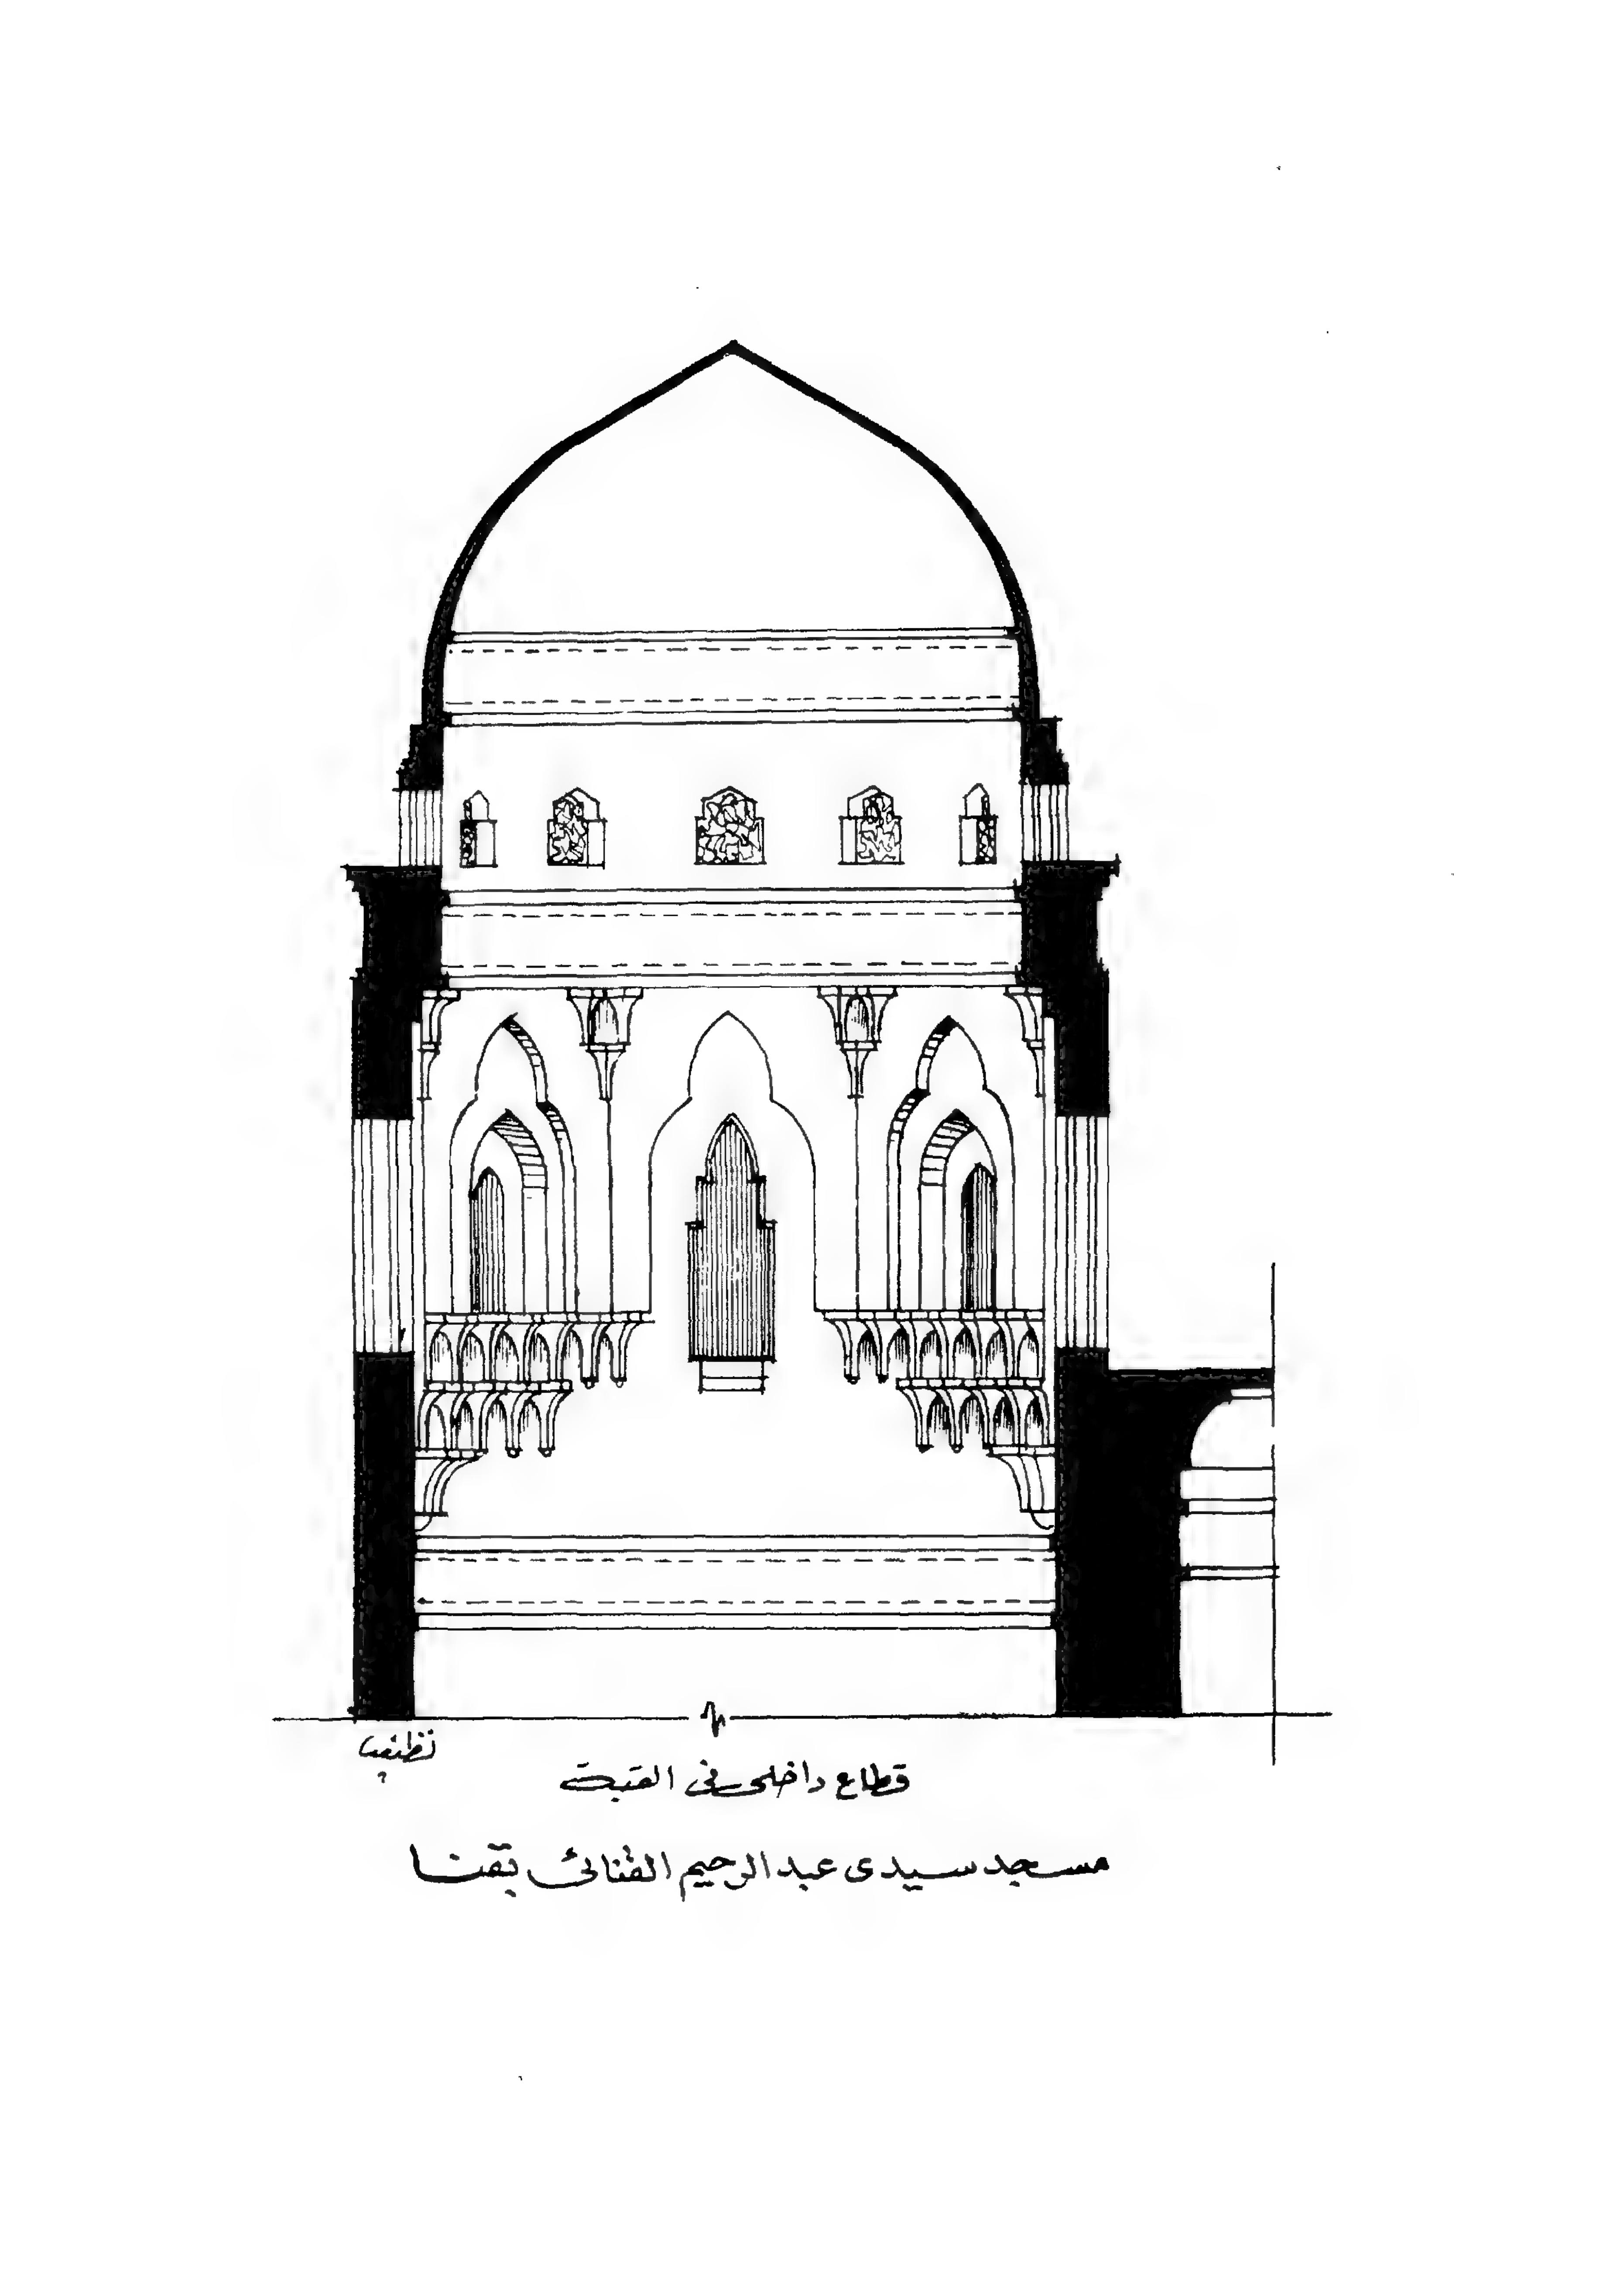 قطاع داخلى فى القبة
مسجد سيدى عبد الرحيم القنائى بقنا